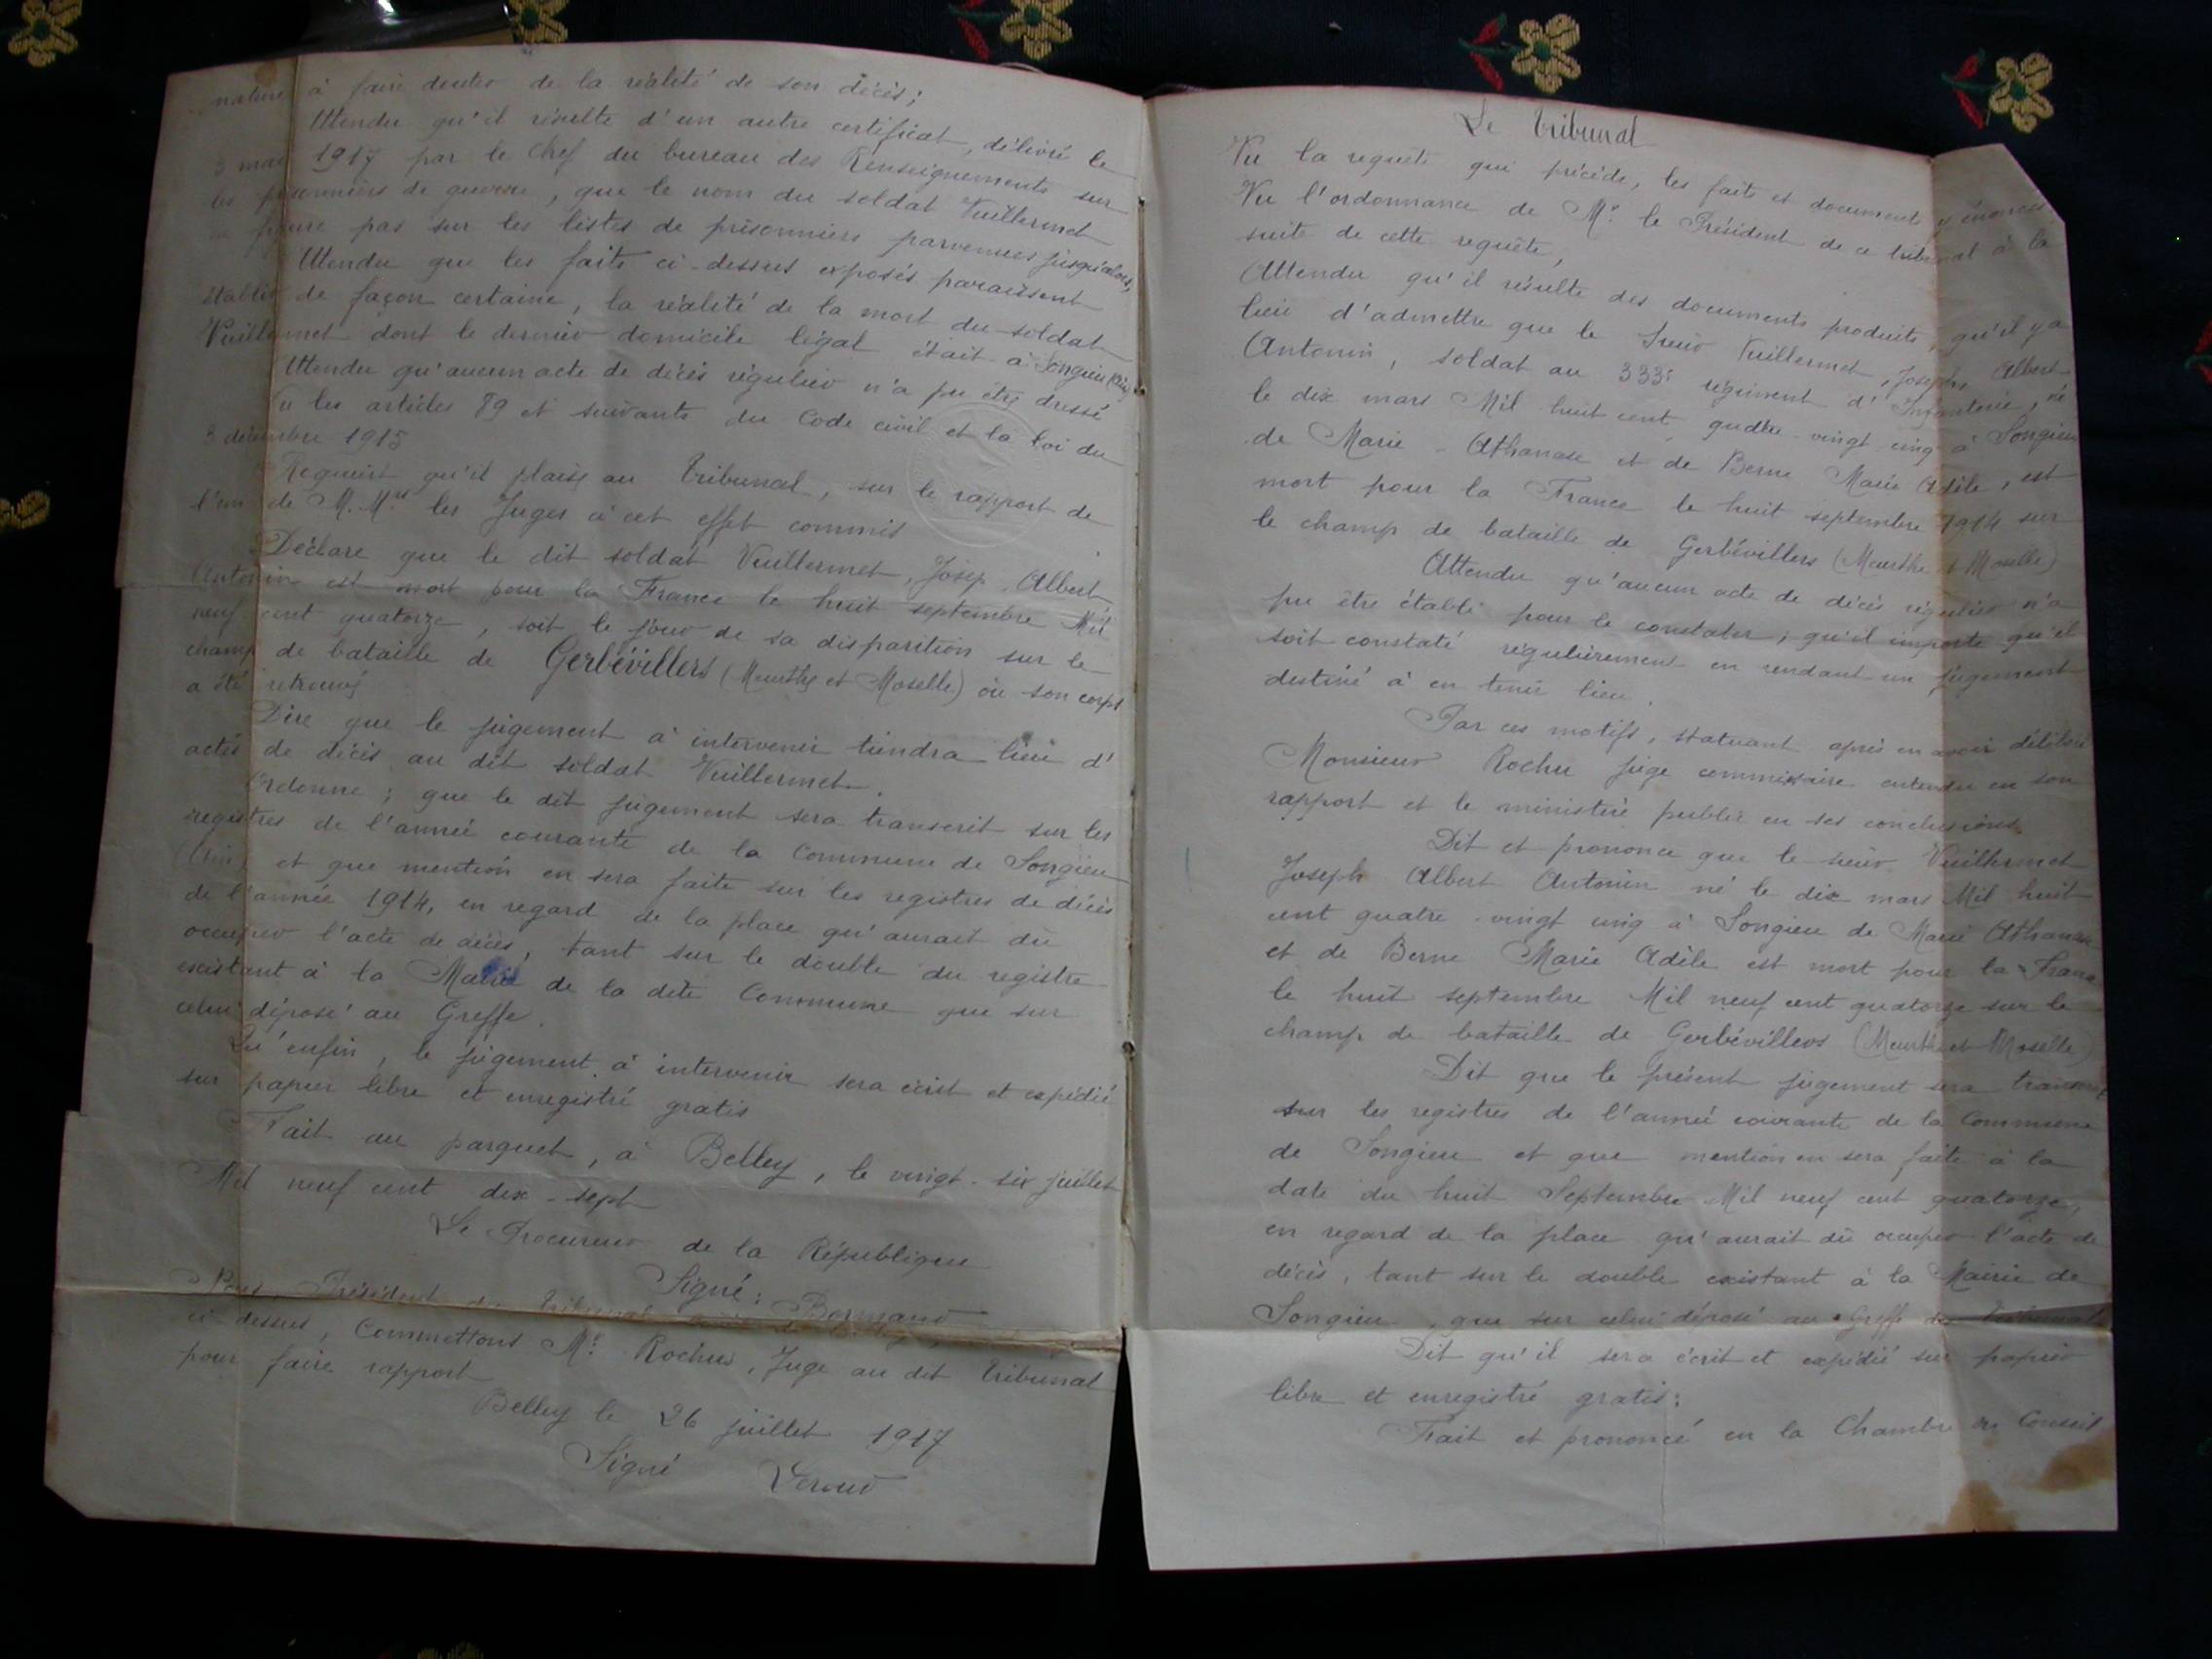 nature à faire douter de la réalité de son décès;
Attendu qu'il résulte d'un autre certificat, délivré le
3 mai 1917 par le chef du bureau des Renseignements sur
les prisonniers de guerre, que le nom du soldat Vuillermet
ne figure pas sur les listes de prisonniers parvenues jusqu'alors;
Attendu que les faits ci-dessus exposés paraissent
établir de façon certaine, la réalité de la mort du soldat
Vuillermet dont le dernier domicile légal était à Songieu (Ain)
Attendu qu'aucun acte de décès régulier n'a pu être dressé
Vu les articles 89 et suivants du Code civil et la loi du
3 décembre 1915
Requiert qu'il plaise au Tribunal, sur le rapport de
l'un de M.Mrs les Juges à cet effet commis
Déclare que le dit soldat Vuillermet, Josep. Albert
Antonin est mort pour la France le huit septembre Mil
neuf cent quatorze, soit le jour de sa disparition sur le
champ de bataille de Gerbévillers (Meurthe et Moselle) où son corps
a été retrouvé
Dire que le jugement à intervenir tiendra lieu d'
actes de décès au dit soldat Vuillermet.
Ordonne; que le dit jugement sera transcrit sur les
registres de l'année courante de la Commune de Songieu
(Ain) et que mention en sera faite sur les registres de décès
de l'année 1914, en regard de la place qu'aurait dû
occuper l'acte de décès, tant sur le double du registre
existant à la Mairie de la dite Commune que sur
celui déposé au Greffe.
Qu'enfin, le jugement à intervenir sera écrit et expédié
sur papier libre et enregistré gratis
Fait au parquet, à Belley, le vingt-six juillet
Mil neuf cent dix-sept
Le Procureur de la République
Signé:
Nous, Président du tribunal
ci dessus, Commettons Mr Rochu, Juge au dit tribunal
pour faire rapport
Belley le 26 juillet 1917
Signé
Le tribunal
Vu la requête qui précède, les faits et document y énoncés
Vu l'ordonnance de Mr le Président de ce tribunal à la
suite de cette requête,
Attendu qu'il résulte des documents produits, qu'il y a
lieu d'admettre que le Sieur Vuillermet, Joseph, Albert
Antonin, soldat au 333e régiment d'Infanterie, né
le dix mars Mil huit cent quatre-vingt cinq à Songieu
de Marie-Athanase et de Berne Marie Adèle, est
mort pour la France le huit septembre 1914 sur
le champ de bataille de Gerbévillers (Meurthe et Moselle)
Attendu qu'aucun acte de décès régulier n'a
pu être établi pour le constater; qu'il importe qu'il
soit constaté régulièrement en rendant un jugement
destiné à en tenir lieu.
Par ces motifs, statuant après en avoir délibéré
Monsieur Rochu juge commissaire entendu en son
rapport et le ministère public en ses conclusions,
Dit et prononce que le sieur Vuillermet
Joseph Albert Antonin né le dix mars Mil huit
cent quatre-vingt cinq à Songieu de Marie Athanase
et de Berne Marie Adèle est mort pour la France
le huit septembre Mil neuf cent quatorze sur le
champ de bataille de Gerbévillers (Meurthe et Moselle)
Dit que le présent jugement sera
sur les registres de l'année courante de la Commune
de Songieu et que mention en sera faite à la
date du huit Septembre Mil neuf cent quatorze,
en regard de la place qu'aurait dû occuper l'acte de
décès, tant sur le double existant à la Mairie de
Songieu, que sur celui déposé au Greffe du tribunal
Dit qu'il sera écrit et expédié sur papier
libre et enregistré gratis:
Fait et prononcé en la Chambre du Conseil